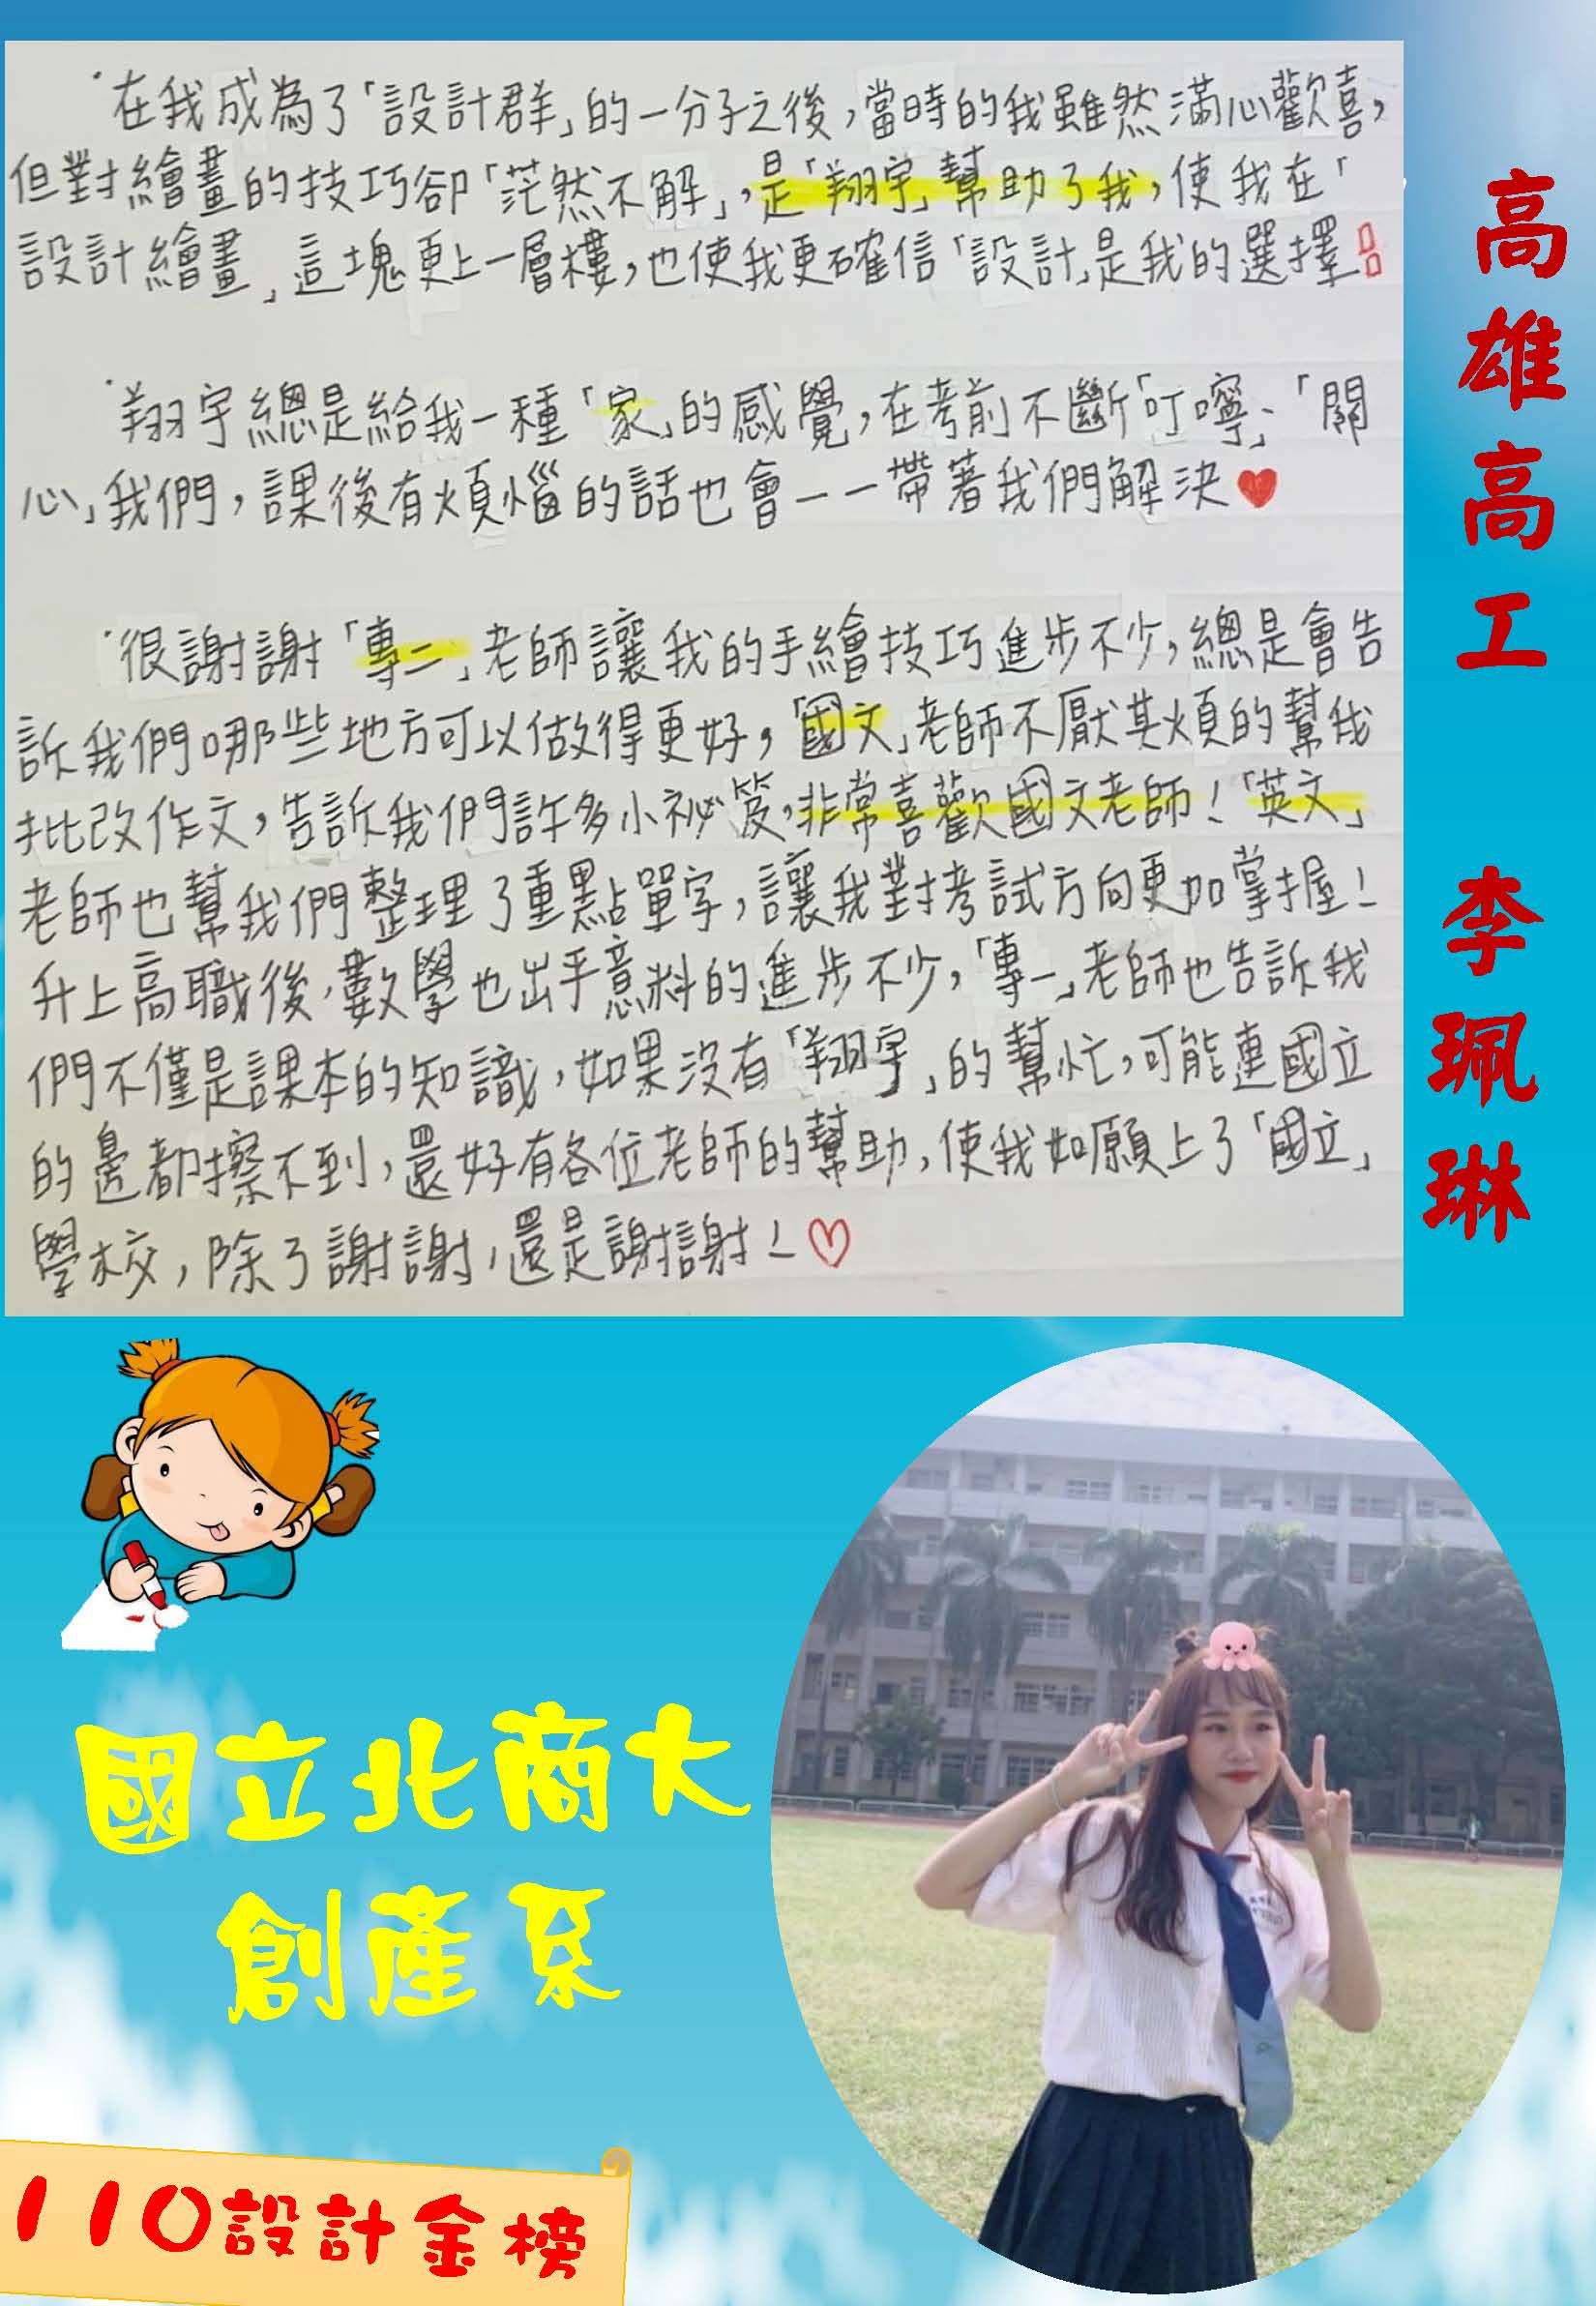 在我成為了「設計群」的一分子之後,當時的我雖然滿心歡喜,
但對繪畫的技巧卻「茫然不解」,是「翔宇」幫助了我,使我在「
設計繪畫」這塊更上一層樓,也使我更確信「設計」是我的選擇!!
翔宇總是給我一種「家」的感覺,在考前不斷「叮嚀」、「關
心」我們,課後有煩惱的話也會一一帶著我們解決
很謝謝「專二」老師讓我的手繪技巧進步不少,總是會告
訴我們哪些地方可以做得更好,「國文」老師不厭其煩的幫我
批改作文,告訴我們許多小祕笈,非常喜歡國文老師!「英文」
老師也幫我們整理了重點單字,讓我對考試方向更加掌握!
升上高職後,數學也出乎意料的進步不少,「專一」老師也告訴我
們不僅是課本的知識,如果沒有「翔宇」的幫忙,可能連國立
的邊都擦不到,還好有各位老師的幫助,使我如願上了「國立」
學校,除了謝謝,還是謝謝!♡
高雄高工 李珮琳
國立北商大
創產系
110設計金榜